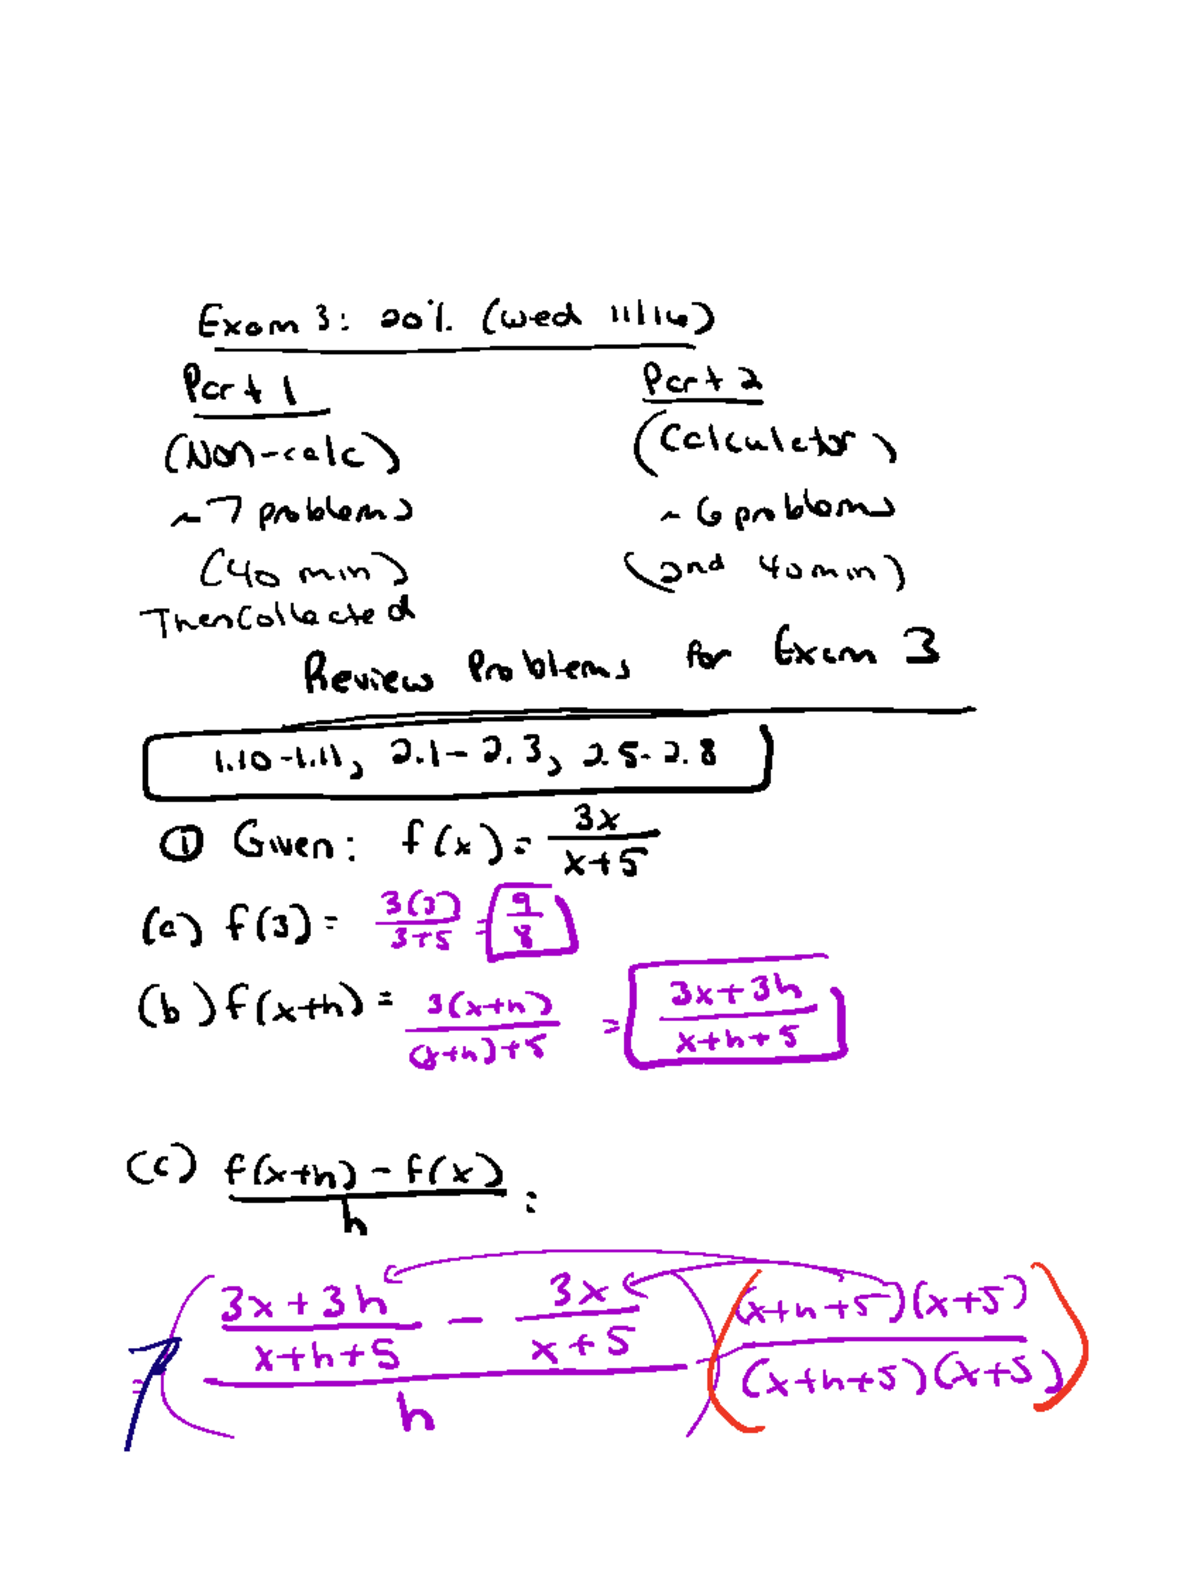 Exam 3: 20% (Wed 11/16)
Part 1 Part 2
(Non-calc) (Calculator)
~7 problems ~6 problems
(40 min) (2nd 40 min)
Then Collected
Review Problems for Exam 3
1.10-1.11, 2.1-2.3, 2.5-2.8
① Given: f(x) = 3x/(x+5)
(a) f(3) = 3(3)/(3+5) = 9/8
(b) f(x+h) = 3(x+h)/((x+h)+5) = (3x+3h)/(x+h+5)
(c) (f(x+h) - f(x))/h :
= (((3x+3h)/(x+h+5) - 3x/(x+5))/h) · ((x+h+5)(x+5)/((x+h+5)(x+5)))